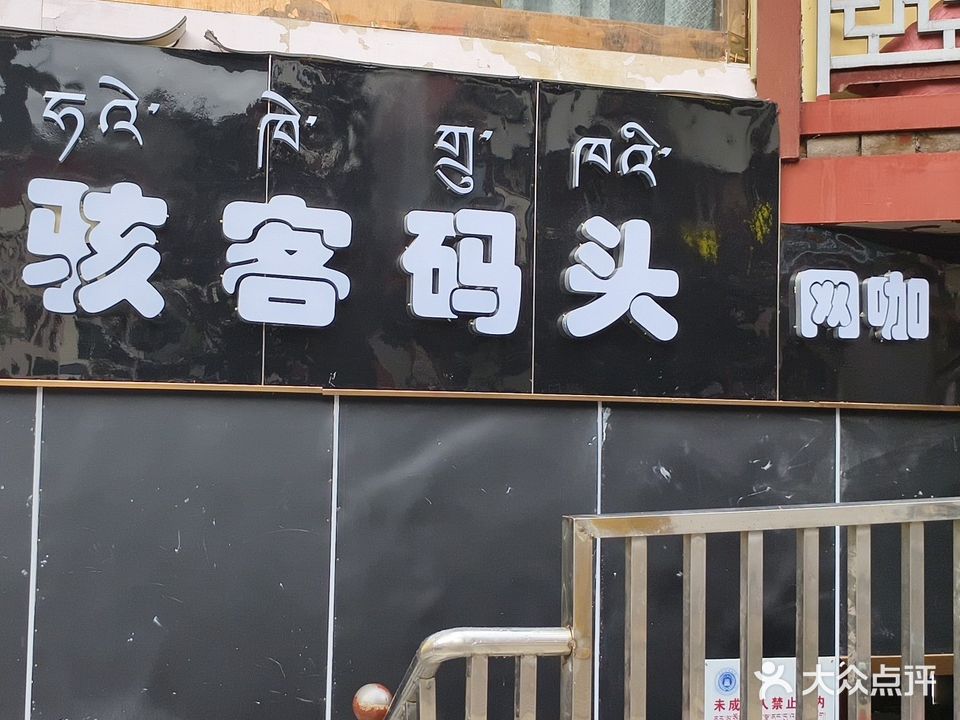 ཧའེ་ ཁེ་ གྲུ་ ཁའི་
骇客码头 网咖
未成 人禁止 内
大众点评